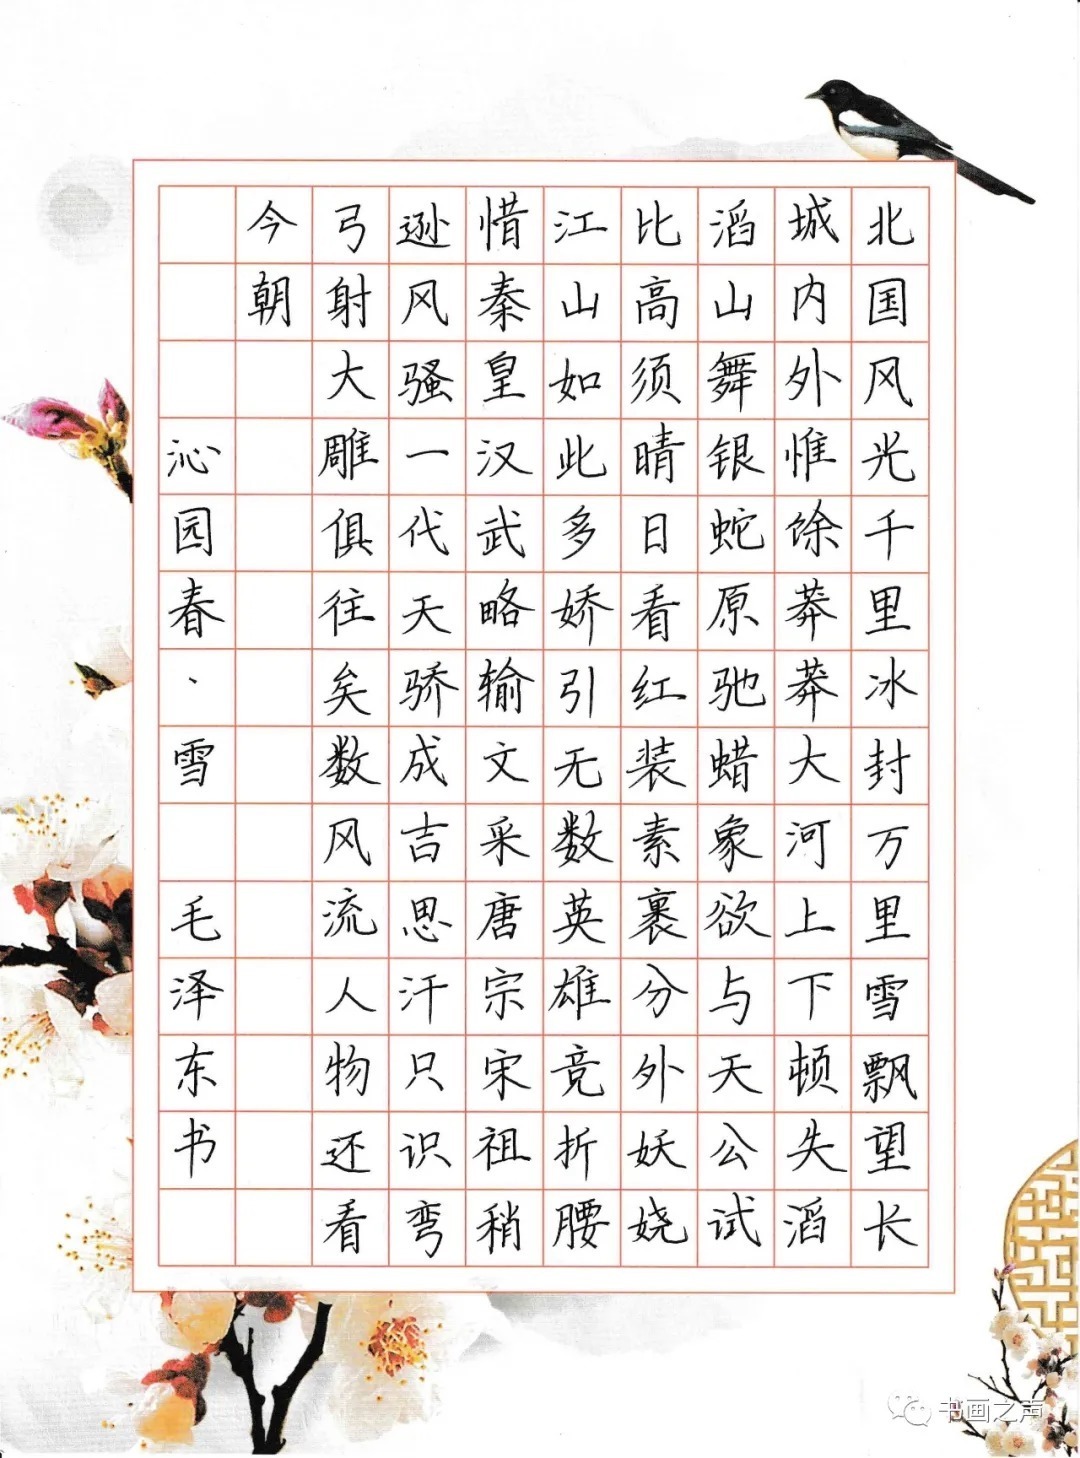 北国风光千里冰封万里雪飘望长
城内外惟馀莽莽大河上下顿失滔
滔山舞银蛇原驰蜡象欲与天公试
比高须晴日看红装素裹分外妖娆
江山如此多娇引无数英雄竞折腰
惜秦皇汉武略输文采唐宗宋祖稍
逊风骚一代天骄成吉思汗只识弯
弓射大雕俱往矣数风流人物还看
今朝
沁园春·雪 毛泽东书
书画之声